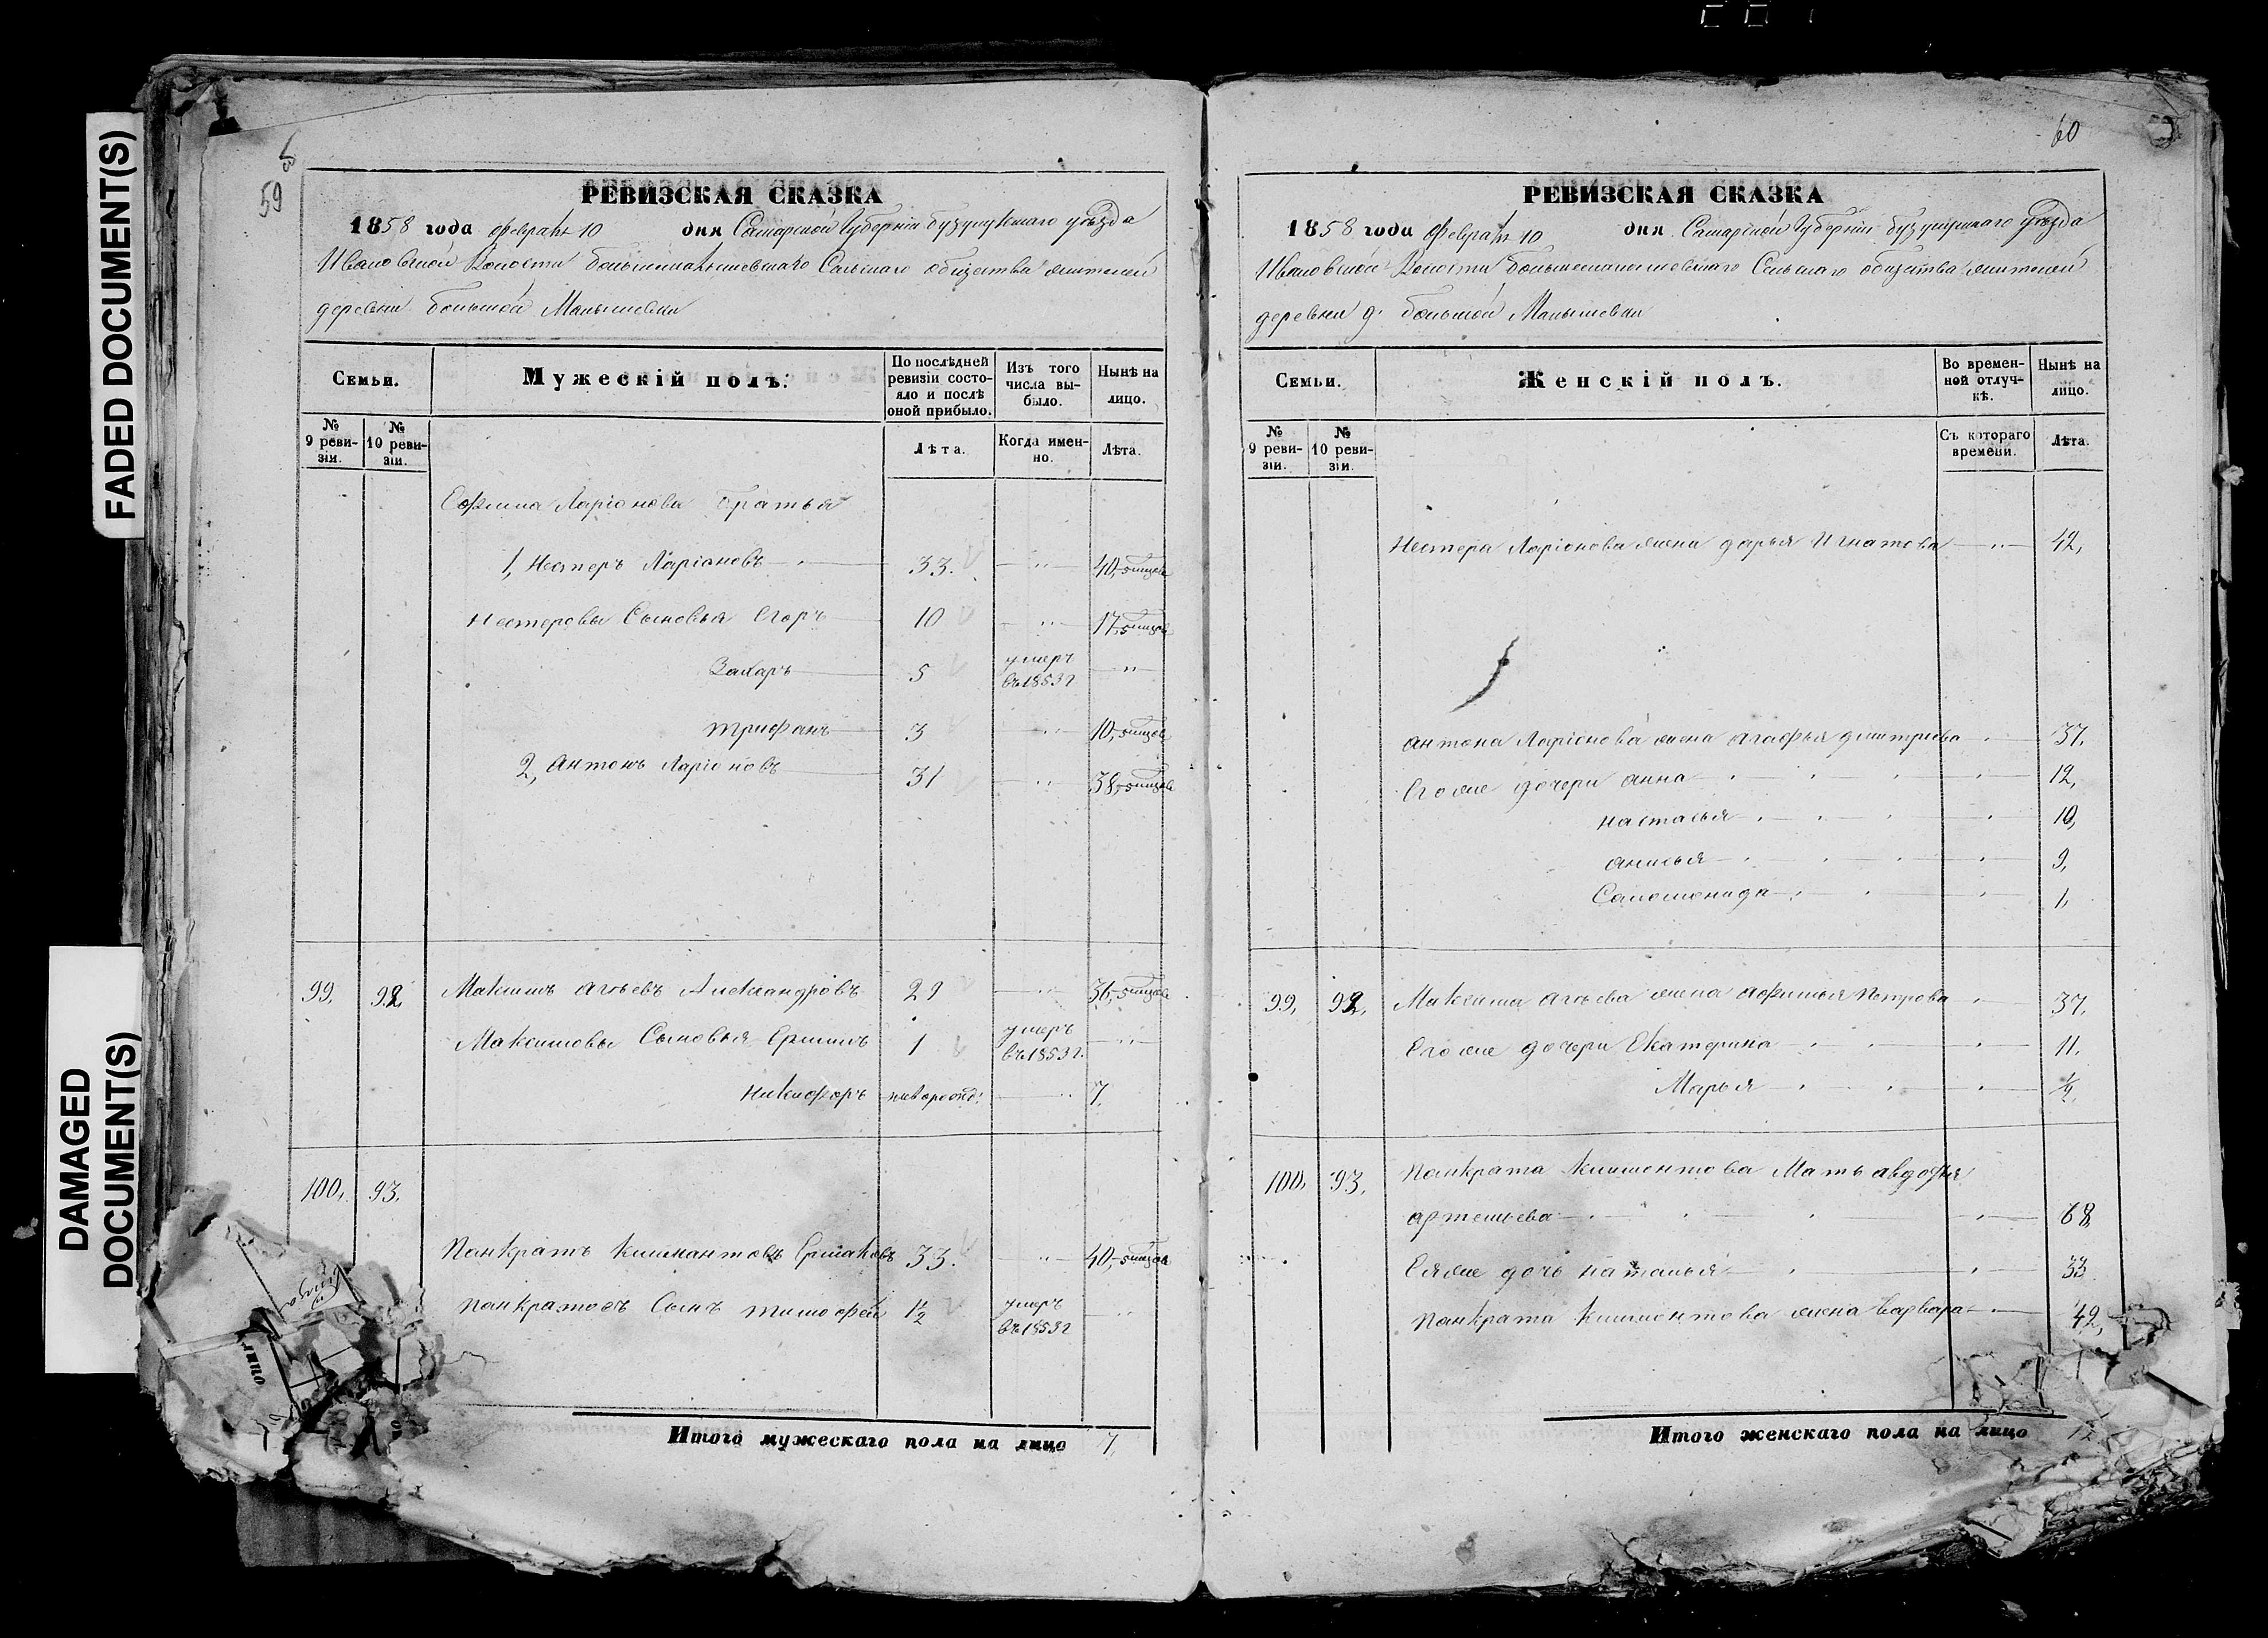 FADED DOCUMENT(S)
DAMAGED DOCUMENT(S)
59
РЕВИЗСКАЯ СКАЗКА
1858 года Февраля 10 дня Самарской Губерніи бузулукскаго уѣзда
Ивановской Волости большемалышевскаго Сельскаго общества жителей
деревни большой Малышевки
Семьи.
Мужескій полъ.
По послѣдней ревизіи состояло и послѣ оной прибыло.
Изъ того числа выбыло.
Нынѣ на лицо.
№ 9 ревизіи.
№ 10 ревизіи.
Лѣта.
Когда именно.
Лѣта.
Ефима Ларіонова братья
1, Нестеръ Ларіоновъ 33. 40,
Нестеровы Сыновья Егоръ 10 17,
Захаръ 5 умеръ въ 1853 г
Трифанъ 3 10,
2, Антонъ Ларіоновъ 31 38,
99, 92 Максимъ Агѣевъ Александровъ 29 36,
Максимовы Сыновья Ермилъ 1 умеръ въ 1853 г.
Никифоръ новорожд: 7.
100, 93,
Панкратъ Климантовъ Ермаковъ 33. 40,
Панкратовъ Сынъ тимофей 1/2 умеръ въ 1853 г
Итого мужескаго пола на лицо 7
60
РЕВИЗСКАЯ СКАЗКА
1858 года Февраля 10 дня Самарской Губерніи бузулукскаго уѣзда
Ивановской Волости большемалышевскаго Сельскаго общества жителей
деревни д. большой Малышевки
Семьи.
Женскій полъ.
Во временной отлучкѣ.
Нынѣ на лицо.
№ 9 ревизіи.
№ 10 ревизіи.
Съ котораго времени.
Лѣта.
Нестера Ларіонова жена дарья Игнатова 42,
антона Ларіонова жена агафья дмитріева 37.
Его же дочери анна 12,
настасья 10,
анисья 9,
Саломонида 1,
99, 92, Максима Агѣева жена афимья Петрова 37.
Его же дочери Екатерина 11.
Марья
100, 93, Панкрата Климонтова Мать авдотья
артемьева 68
Ея же дочь наталья 33
Панкрата Климонтова жена варвара 42,
Итого женскаго пола на лицо